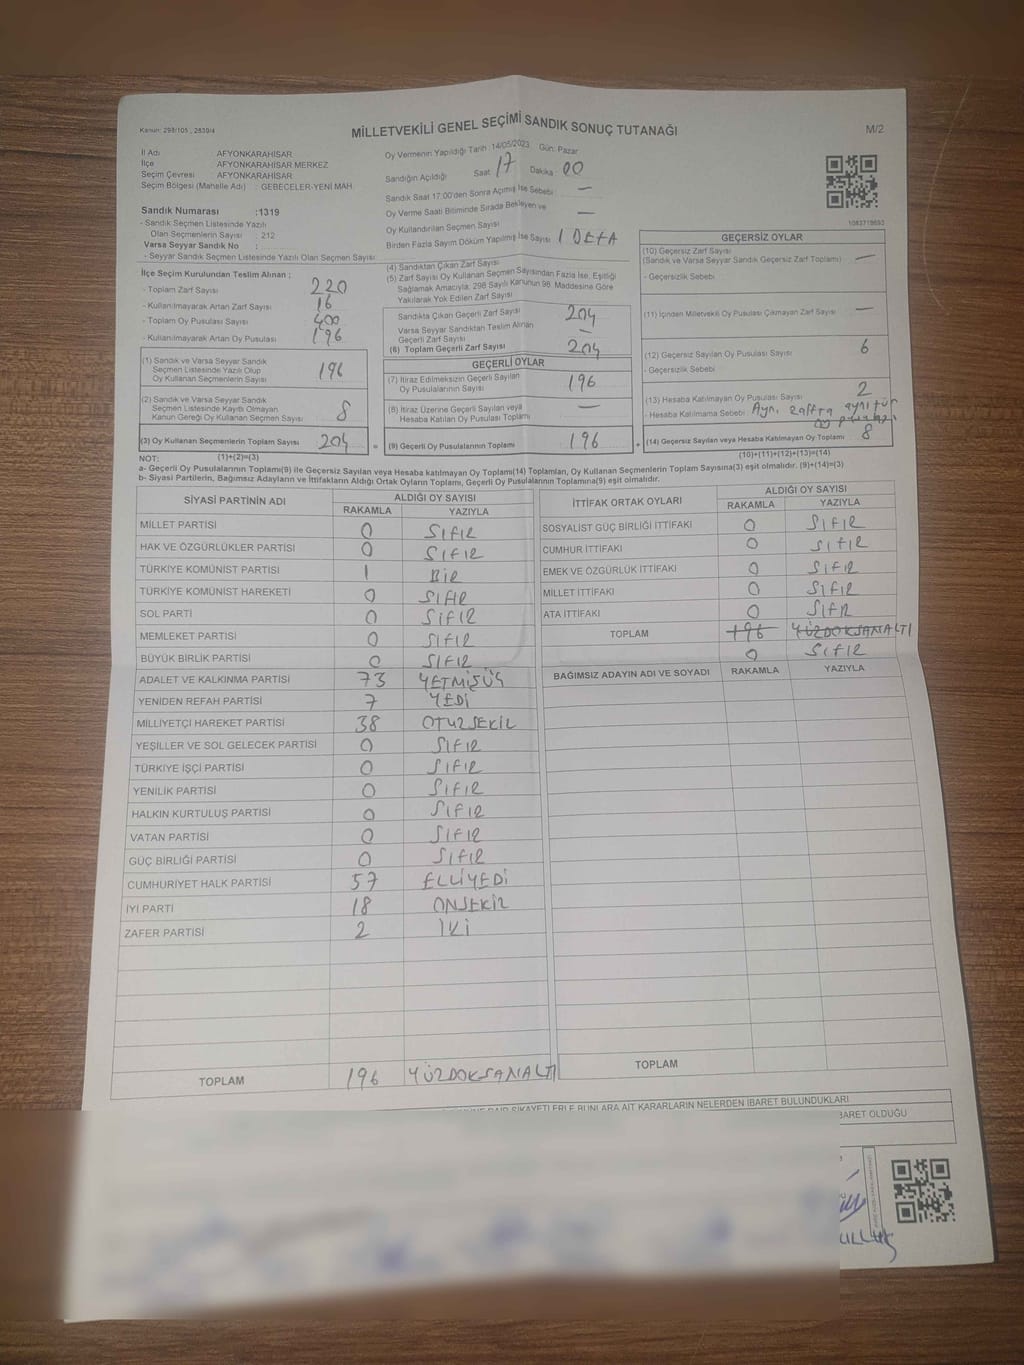 Kanun: 298/105 , 2839/4
MİLLETVEKİLİ GENEL SEÇİMİ SANDIK SONUÇ TUTANAĞI
M/2
İl Adı AFYONKARAHİSAR
İlçe AFYONKARAHİSAR MERKEZ
Seçim Çevresi AFYONKARAHİSAR
Seçim Bölgesi (Mahelle Adı) : GEBECELER-YENİ MAH.
Sandık Numarası :1319
- Sandık Seçmen Listesinde Yazılı
Olan Seçmenlerin Sayısı : 212
Varsa Seyyar Sandık No :
- Seyyar Sandık Seçmen Listesinde Yazılı Olan Seçmen Sayısı:
Oy Vermenin Yapıldığı Tarih :14/05/2023 Gün: Pazar
Sandığın Açıldığı Saat : 17 Dakika : 00
Sandık Saat 17:00'den Sonra Açımış İse Sebebi : —
Oy Verme Saati Bitiminde Sırada Bekleyen ve
Oy Kullandırılan Seçmen Sayısı —
Birden Fazla Sayım Döküm Yapılmış İse Sayısı : 1 DEFA
1083718693
İlçe Seçim Kurulundan Teslim Alınan :
- Toplam Zarf Sayısı 220
- Kullanılmayarak Artan Zarf Sayısı 16
- Toplam Oy Pusulası Sayısı 400
- Kullanılmayarak Artan Oy Pusulası 196
(1) Sandık ve Varsa Seyyar Sandık
Seçmen Listesinde Yazılı Olup
Oy Kullanan Seçmenlerin Sayısı 196
(2) Sandık ve Varsa Seyyar Sandık
Seçmen Listesinde Kayıtlı Olmayan
Kanun Gereği Oy Kullanan Seçmen Sayısı 8
(3) Oy Kullanan Seçmenlerin Toplam Sayısı 204
(4) Sandıktan Çıkan Zarf Sayısı
(5) Zarf Sayısı Oy Kullanan Seçmen Sayısından Fazla İse, Eşitliği
Sağlamak Amacıyla, 298 Sayılı Kanunun 98. Maddesine Göre
Yakılarak Yok Edilen Zarf Sayısı
Sandıkta Çıkan Geçerli Zarf Sayısı 204
Varsa Seyyar Sandıktan Teslim Alınan
Geçerli Zarf Sayısı —
(6) Toplam Geçerli Zarf Sayısı 204
GEÇERLİ OYLAR
(7) İtiraz Edilmeksizin Geçerli Sayılan
Oy Pusulalarının Sayısı 196
(8) İtiraz Üzerine Geçerli Sayılan veya
Hesaba Katılan Oy Pusulası Toplamı —
= (9) Geçerli Oy Pusulalarının Toplamı 196
GEÇERSİZ OYLAR
(10) Geçersiz Zarf Sayısı
(Sandık ve Varsa Seyyar Sandık Geçersiz Zarf Toplamı) —
- Geçersizlik Sebebi :
(11) İçinden Milletvekili Oy Pusulası Çıkmayan Zarf Sayısı —
(12) Geçersiz Sayılan Oy Pusulası Sayısı 6
- Geçersizlik Sebebi :
(13) Hesaba Katılmayan Oy Pusulası Sayısı 2
- Hesaba Katılmama Sebebi : Aynı zarfta aynı tür
oy pusulası
+ (14) Geçersiz Sayılan veya Hesaba Katılmayan Oy Toplamı 8
NOT: (1)+(2)=(3)
(10)+(11)+(12)+(13)=(14)
a- Geçerli Oy Pusulalarının Toplamı(9) ile Geçersiz Sayılan veya Hesaba katılmayan Oy Toplamı(14) Toplamları, Oy Kullanan Seçmenlerin Toplam Sayısına(3) eşit olmalıdır. (9)+(14)=(3)
b- Siyasi Partilerin, Bağımsız Adayların ve İttifakların Aldığı Ortak Oyların Toplamı, Geçerli Oy Pusulalarının Toplamına(9) eşit olmalıdır.
SİYASİ PARTİNİN ADI ALDIĞI OY SAYISI
RAKAMLA YAZIYLA
MİLLET PARTİSİ 0 SIFIR
HAK VE ÖZGÜRLÜKLER PARTİSİ 0 SIFIR
TÜRKİYE KOMÜNİST PARTİSİ 1 BİR
TÜRKİYE KOMÜNİST HAREKETİ 0 SIFIR
SOL PARTİ 0 SIFIR
MEMLEKET PARTİSİ 0 SIFIR
BÜYÜK BİRLİK PARTİSİ 0 SIFIR
ADALET VE KALKINMA PARTİSİ 73 YETMİŞÜÇ
YENİDEN REFAH PARTİSİ 7 YEDİ
MİLLİYETÇİ HAREKET PARTİSİ 38 OTUZSEKİZ
YEŞİLLER VE SOL GELECEK PARTİSİ 0 SIFIR
TÜRKİYE İŞÇİ PARTİSİ 0 SIFIR
YENİLİK PARTİSİ 0 SIFIR
HALKIN KURTULUŞ PARTİSİ 0 SIFIR
VATAN PARTİSİ 0 SIFIR
GÜÇ BİRLİĞİ PARTİSİ 0 SIFIR
CUMHURİYET HALK PARTİSİ 57 ELLİYEDİ
İYİ PARTİ 18 ONSEKİZ
ZAFER PARTİSİ 2 İKİ
TOPLAM 196 YÜZDOKSANALTI
İTTİFAK ORTAK OYLARI ALDIĞI OY SAYISI
RAKAMLA YAZIYLA
SOSYALİST GÜÇ BİRLİĞİ İTTİFAKI 0 SIFIR
CUMHUR İTTİFAKI 0 SIFIR
EMEK VE ÖZGÜRLÜK İTTİFAKI 0 SIFIR
MİLLET İTTİFAKI 0 SIFIR
ATA İTTİFAKI 0 SIFIR
TOPLAM 196 YÜZDOKSANALTI
0 SIFIR
BAĞIMSIZ ADAYIN ADI VE SOYADI RAKAMLA YAZIYLA
TOPLAM
ŞİKAYETLERLE BUNLARA AİT KARARLARIN NELERDEN İBARET BULUNDUKLARI
BARET OLDUĞU